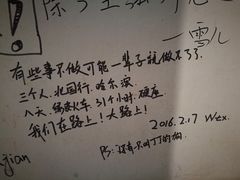 ！
一雪儿
有些事不做可能一辈子就做不了了
三个人.北国行.哈尔滨
八天.绿皮火车.31个小时.硬座
我们在路上！大路上！
2016.2.17 Wex.
PS:还有只叫丁丁的狗.
jian